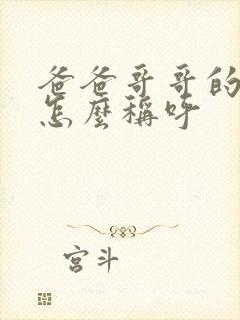 爸爸哥哥的
怎麼稱呼
宮斗